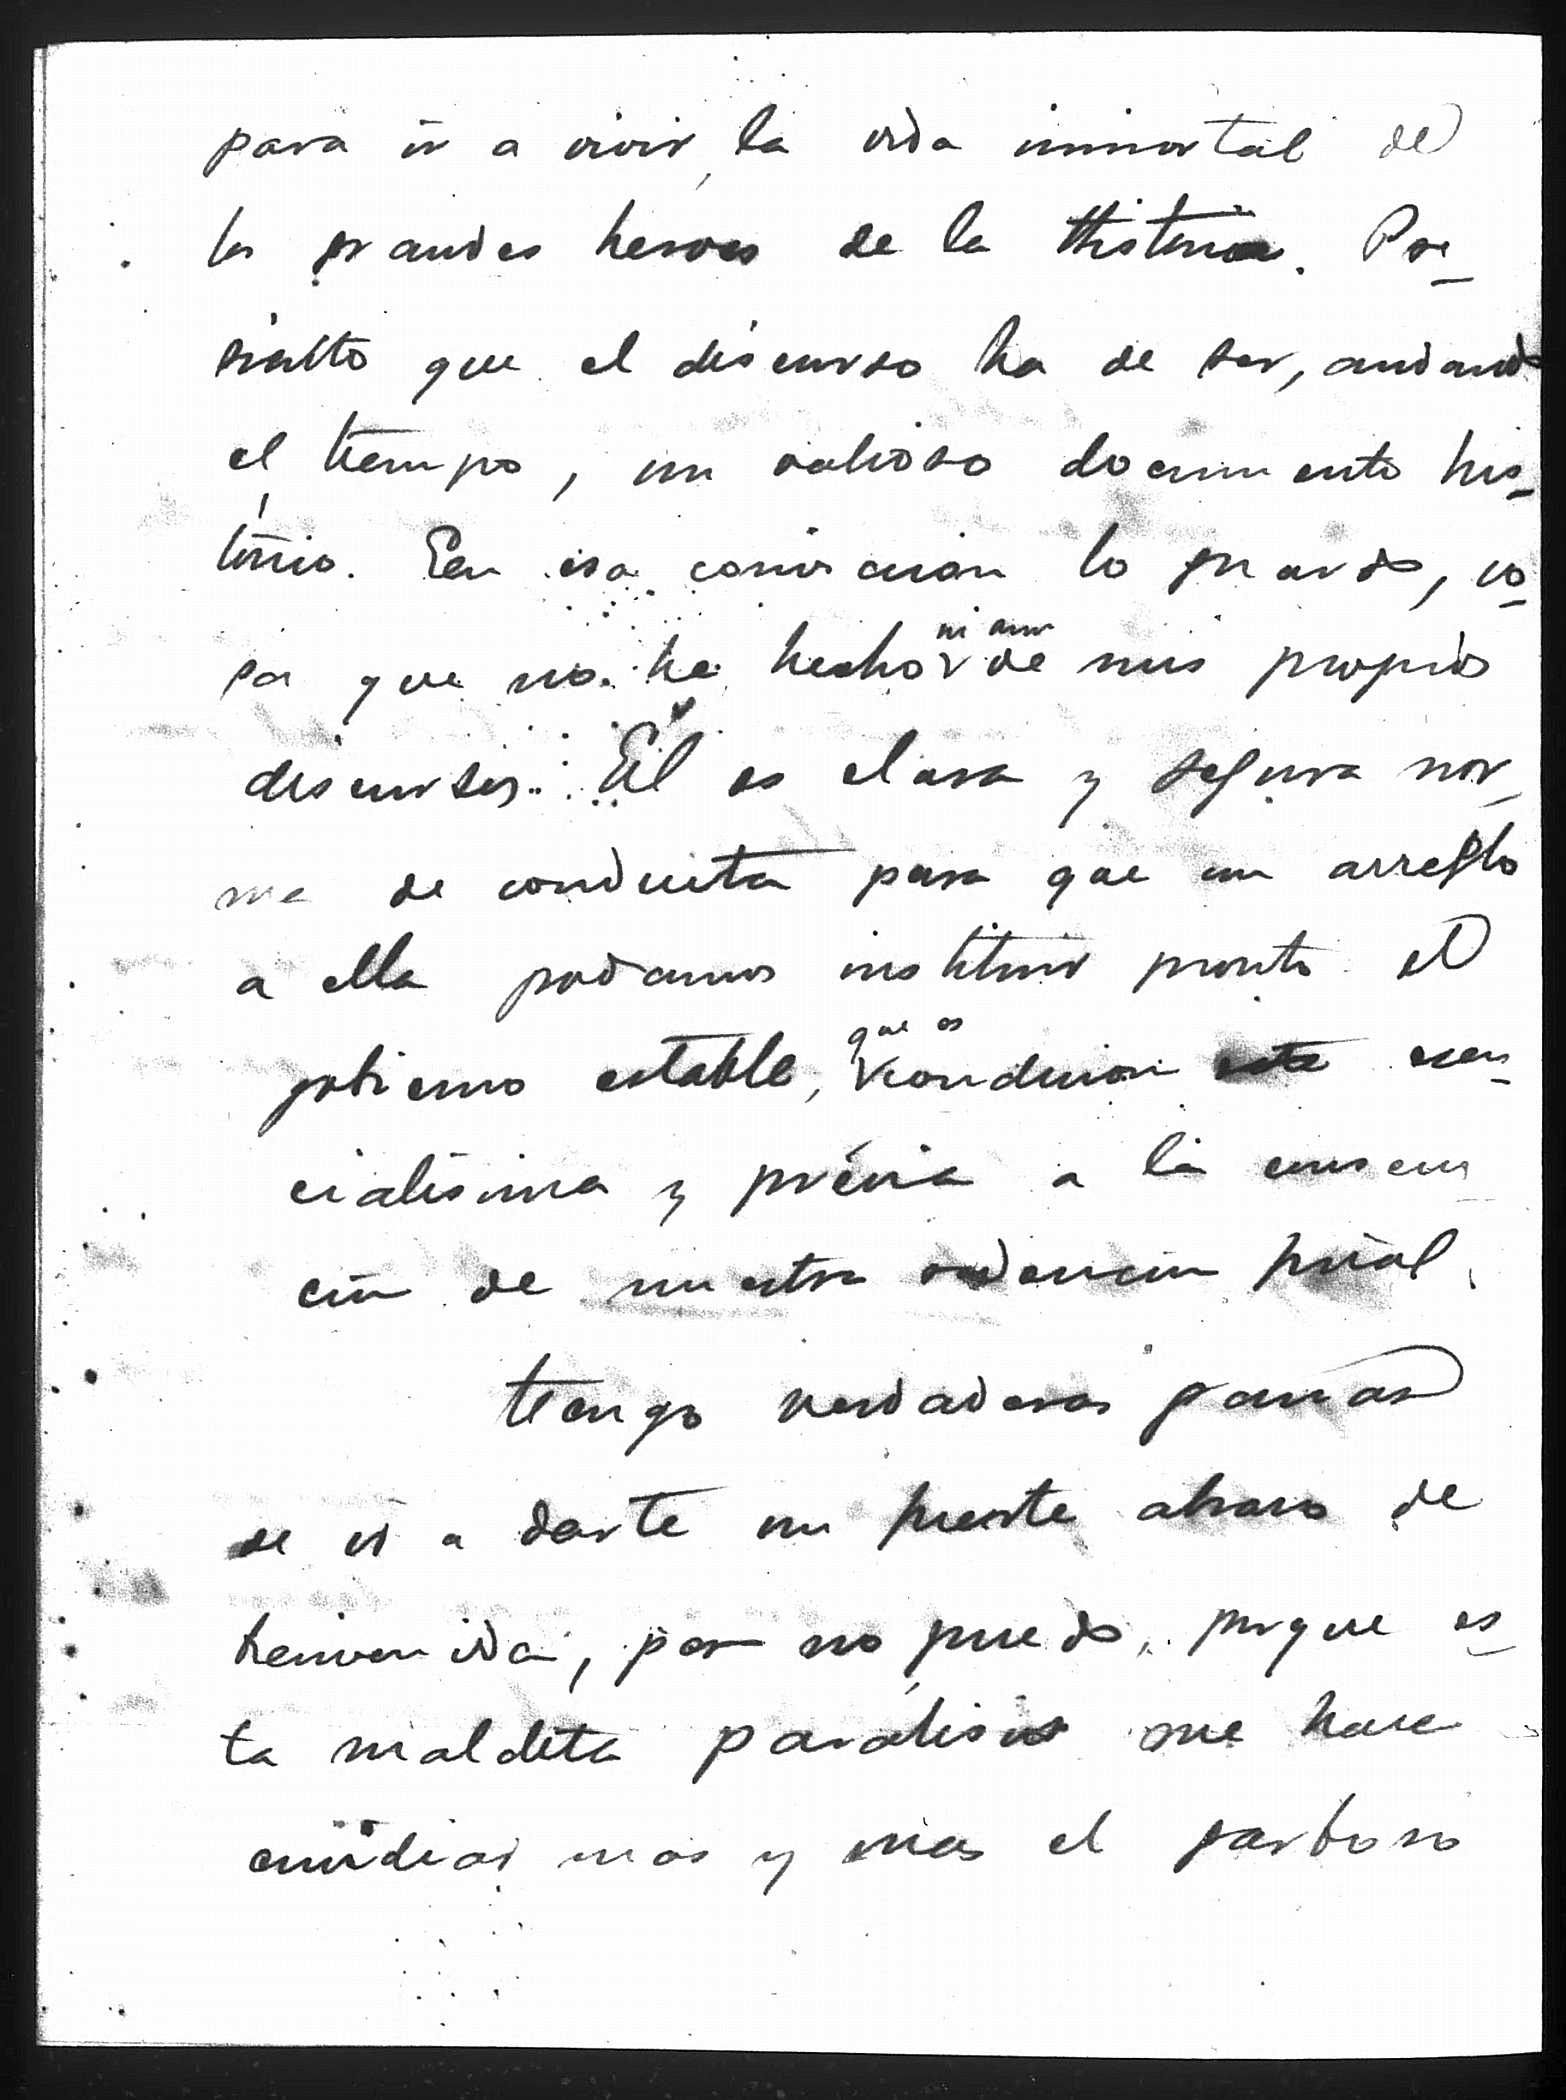 para ir a vivir, la vida inmortal de
los grandes heroes de la Historia. Pre-
siento que el discurso ha de ser, andando
el tiempo, un valioso documento his-
tórico. Con esa convicción lo guardo, co-
sa que no he hecho ni aun de mis propios
discursos. Él es clara y segura nor-
ma de conducta para que con arreglo
a ella podamos instituir pronto el
gobierno estable, que es condicion esen-
cialísima y prévia a la consecu-
ción de nuestra redención final.
Tengo verdaderas ganas
de ir a darte un fuerte abrazo de
bienvenida, pero no puedo, porque es-
ta maldita parálisis me hace
envidiar mas y mas el garboso